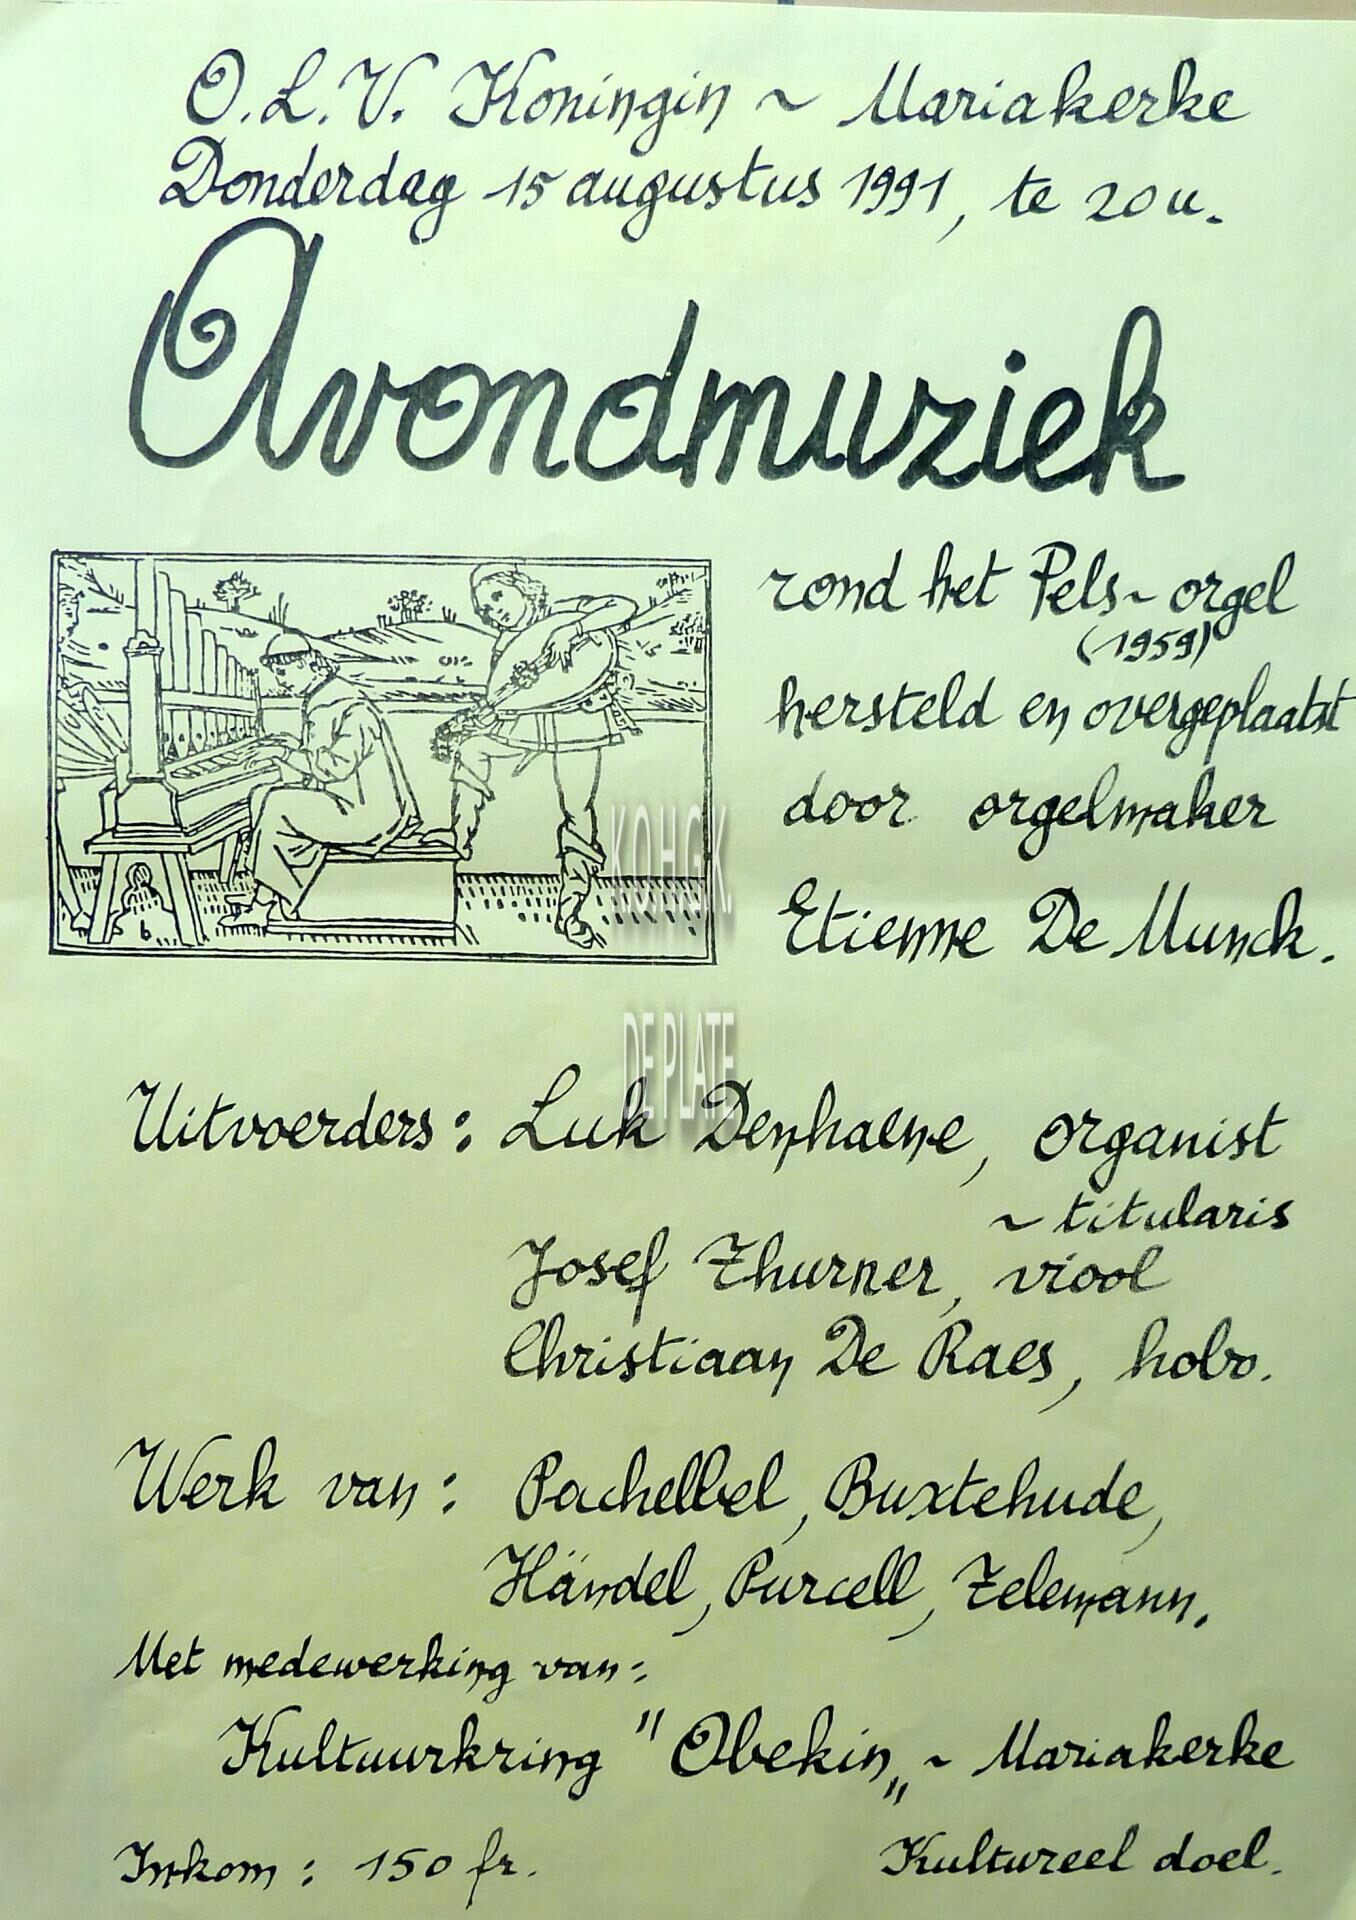 O.L.V. Koningin ~ Mariakerke
Donderdag 15 augustus 1991, te 20 u.
Avondmuziek
rond het Pels~orgel
(1959)
hersteld en overgeplaatst
door orgelmaker
Etienne De Munck.
b
K.O.H.G.K.
DE PLATE
Uitvoerders: Luk Denhaene, organist
~ titularis
Josef Thurner, viool
Christiaan De Raes, hobo.
Werk van: Pachelbel, Buxtehude,
Händel, Purcell, Telemann.
Met medewerking van:
Kultuurkring "Obekin„ ~ Mariakerke
Inkom: 150 fr. Kultureel doel.